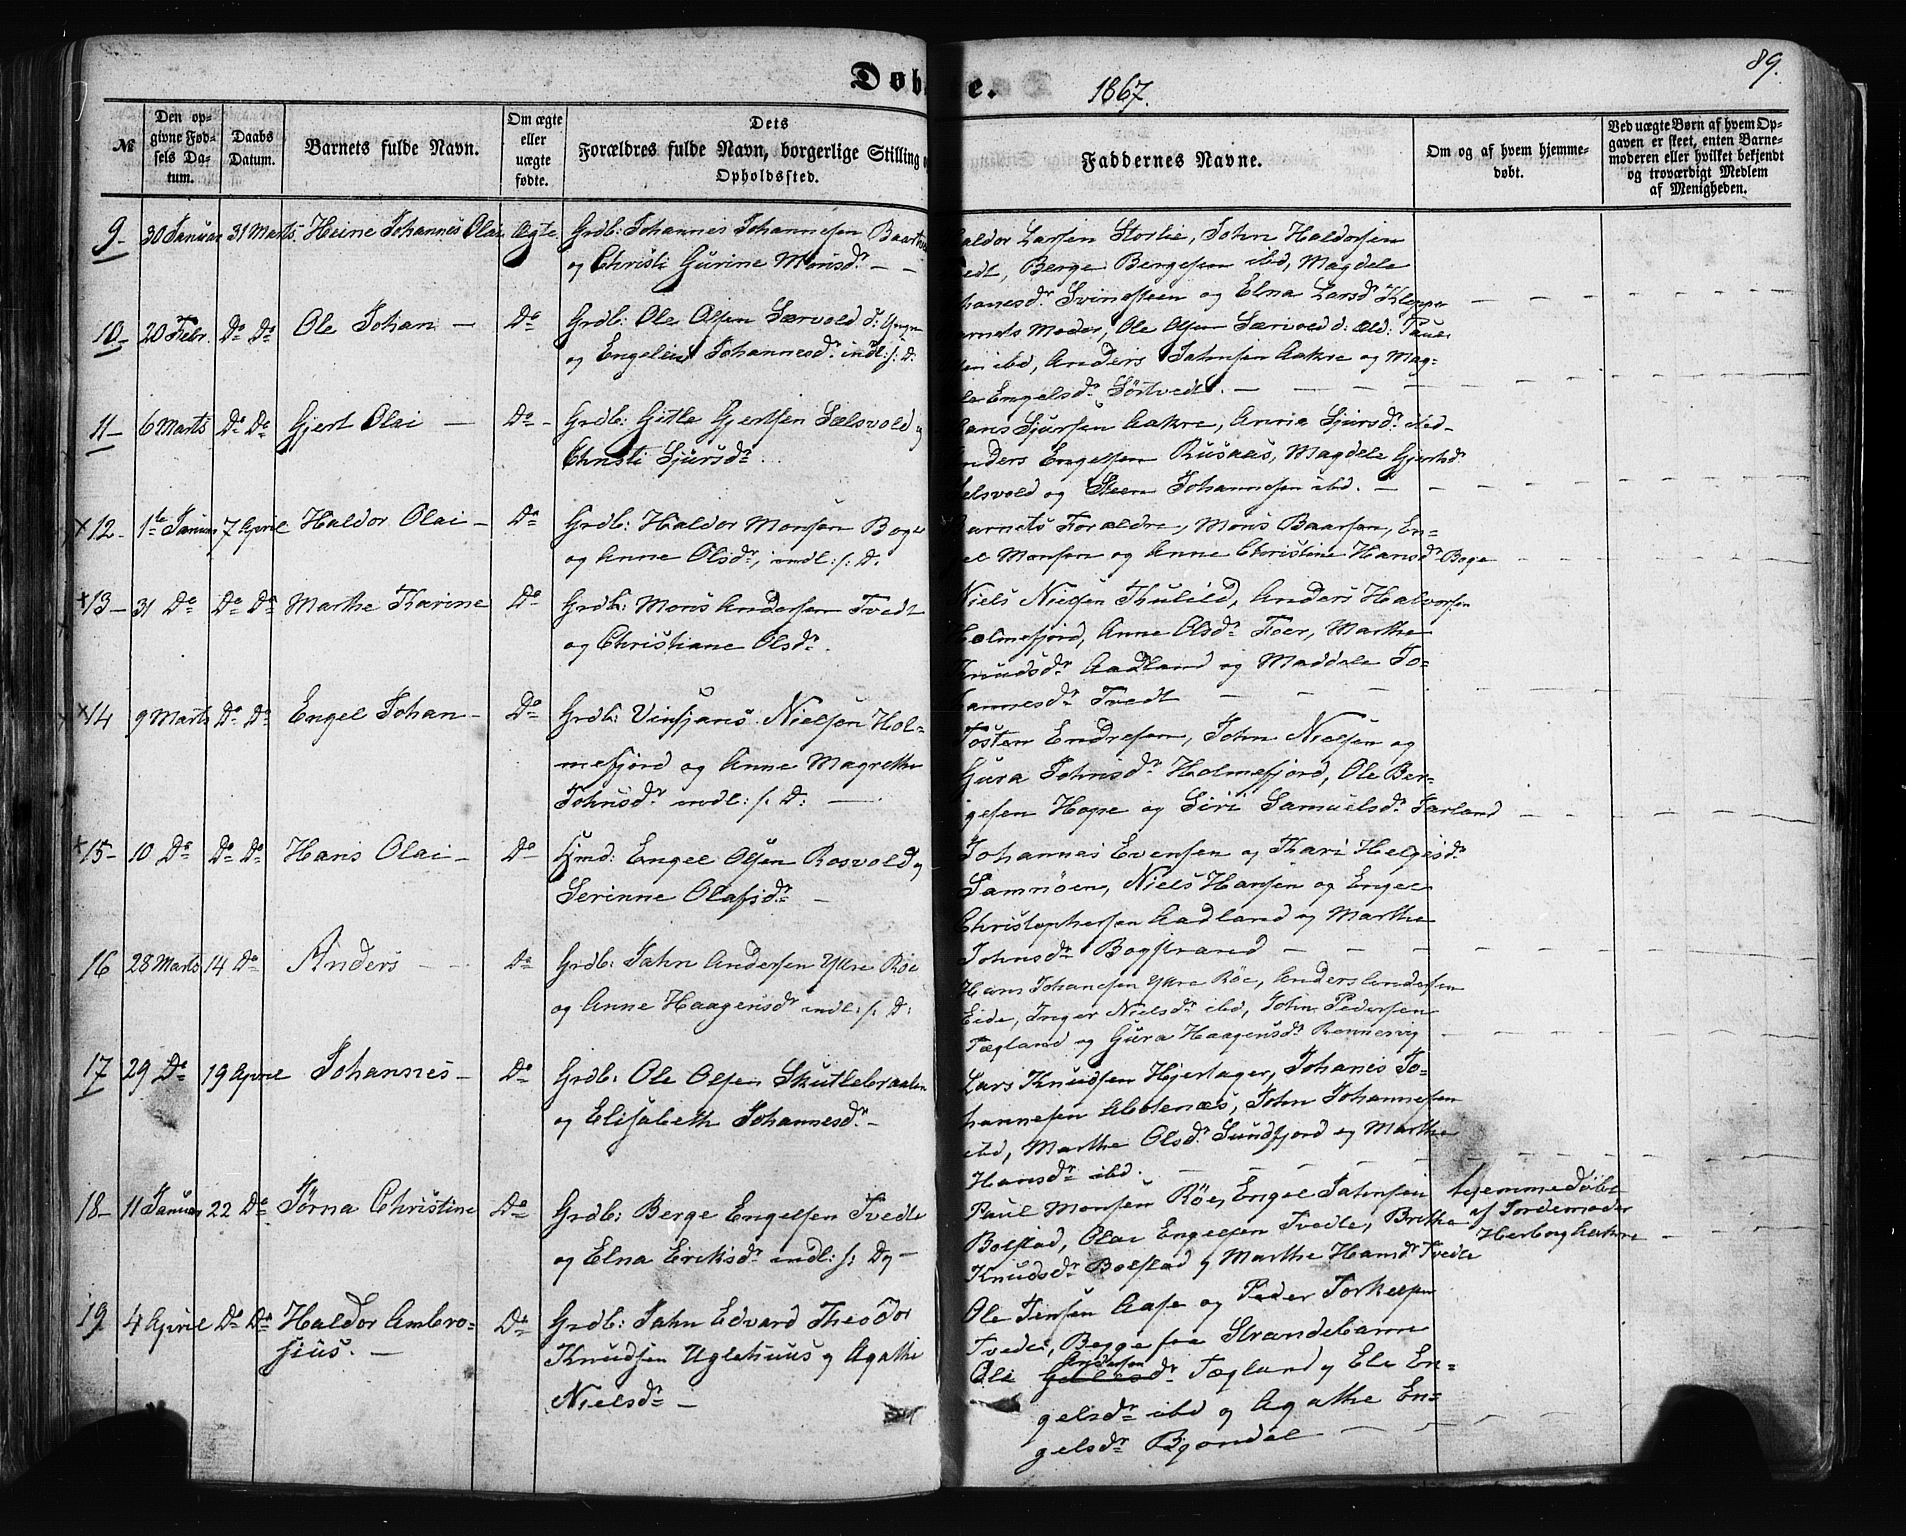 Døb
e.
1867.
89.
№
Den op-
givne Fød-
sels Da-
tum.
Daabs
Datum.
Barnets fulde Navn.
Om ægte
eller
uægte
fødte.
Dets
Forældres fulde Navn, borgerlige Stilling o
Opholdssted.
Faddernes Navne.
Om og af hvem hjemme-
døbt.
Ved uægte Børn af hvem Op-
gaven er skeet, enten Barne-
moderen eller hvilket bekjendt
og troværdigt Medlem
af Menigheden.
9- 30 Januar 31 Marts Heine Johannes Olai Ægte Grdb: Johannes Johannesen
og Christi Gurine Monsdr - -
aldor Larsen Storlie, John Haldorsen
edt, Berge Bergesen ibd, Magdele
hanesdr Svindseen og Elna Larsdr Kleppe
10- 20 Febr. Do Do Ole Johan - Do Grdb: Ole Olsen Særvold d: Yngre
og Engelin Johannesdr indl: f: D.
arnets Moder, Ole Olsen Særvold d: æld: Paul
ibd, Anders Jahnsen Aakre og Mag-
le Engelsdr Sørtvedt. -
11- 6 Marts Do Do Gjert Olai - Do - Grdb: Gitle Gjertsen Sælsvold og
Christi Sjursdr
ans Sjursen Aakre, Anna Sjursdr ibd-
nders Engelsen Rusaas, Magdele Gjertsdr
elsvold og Steen Johannesen ibd. -
x12- 1te Januar 7 April Haldor Olai - Do Grdb: Haldor Monsen Boge
og Anne Olsdr, indl: f: D.
Barnets Forældre, Mons Baarsen, En-
gel Monsen og Anne Christine Hansdr Boge
x13- 31 Do Do Do Marthe Karine Do Grdb: Mons Andersen Tvedt
og Christiane Olsdr.
Niels Nielsen Thuleld, Anders Halvorsen
Holmefjord, Anne Olsdr Foer, Marthe
Knudsdr Aadland og Maddele Jo-
hannesdr Tvedt
x14 9 Marts Do Do Engel Johan - Do Grdb: Vinsjans Nielsen Hol-
mefjord og Anne Magrethe
Johnsdr indl: f: D: -
Tosten Endresen, John Nielsen og
Gura Johnsdr Holmefjord, Ole Ber-
gesen Hope og Siri Samuelsdr Jarland
x15- 10 Do Do Do Hans Olai - Do Hmd: Engel Olsen Rosvold og
Serinne Olafsdr -
Johannes Evensen og Kari Helgesdr
Samnøen, Niels Hansen og Engel
Christophersen Aadland og Marthe
Johnsdr Bogstrand - -
16 28 Marts 14 Do Anders - Do Grdb: Jahn Andersen Ytre Røe
og Anne Haagensdr indl: f: D:
Hans Johanesen Ytre Røe, Anders Andersen
Eide, Inger Nielsdr ibd, John Pedersen
Tægland og Gura Haagensdr Rennevig
17 29 Do 19 April Johannes - Do Grdb: Ole Olsen Skutlebraaten
og Elisabeth Johannesdr -
Lars Knudsen Hjertager, Johanes Jo-
hannesen Aldtenæs, John Johannesen
ibd, Marthe Olsdr Sundfjord og Marthe
Hansdr ibd.
18- 11 Januar 22 Do Jørna Christine Do Grdb: Berge Engelsen Tvedte
og Elna Eriksdr indl: f: Dg -
Paul Monsen Røe, Engel Jahnsen
Bolstad, Olai Engelsen Tvedte, Brithe
Knudsdr Bolstad og Marthe Hansdr Tvedte
hjemmedøbt
af Jordemoder
Herborg Aakre
19 4 April Do Do Haldor Ambro-
sius. -
Do Grdb: Jahn Edvard Theodor
Knudsen Uglehuus og Agathe
Nielsdr -
Ole Jensen Aase og Peder Torkelsen
Tvedt, Begge fra Strandebarm
Andersen
Oli Tægland og Ele En-
gelsdr ibd og Agathe En-
gelsdr Bjondal -